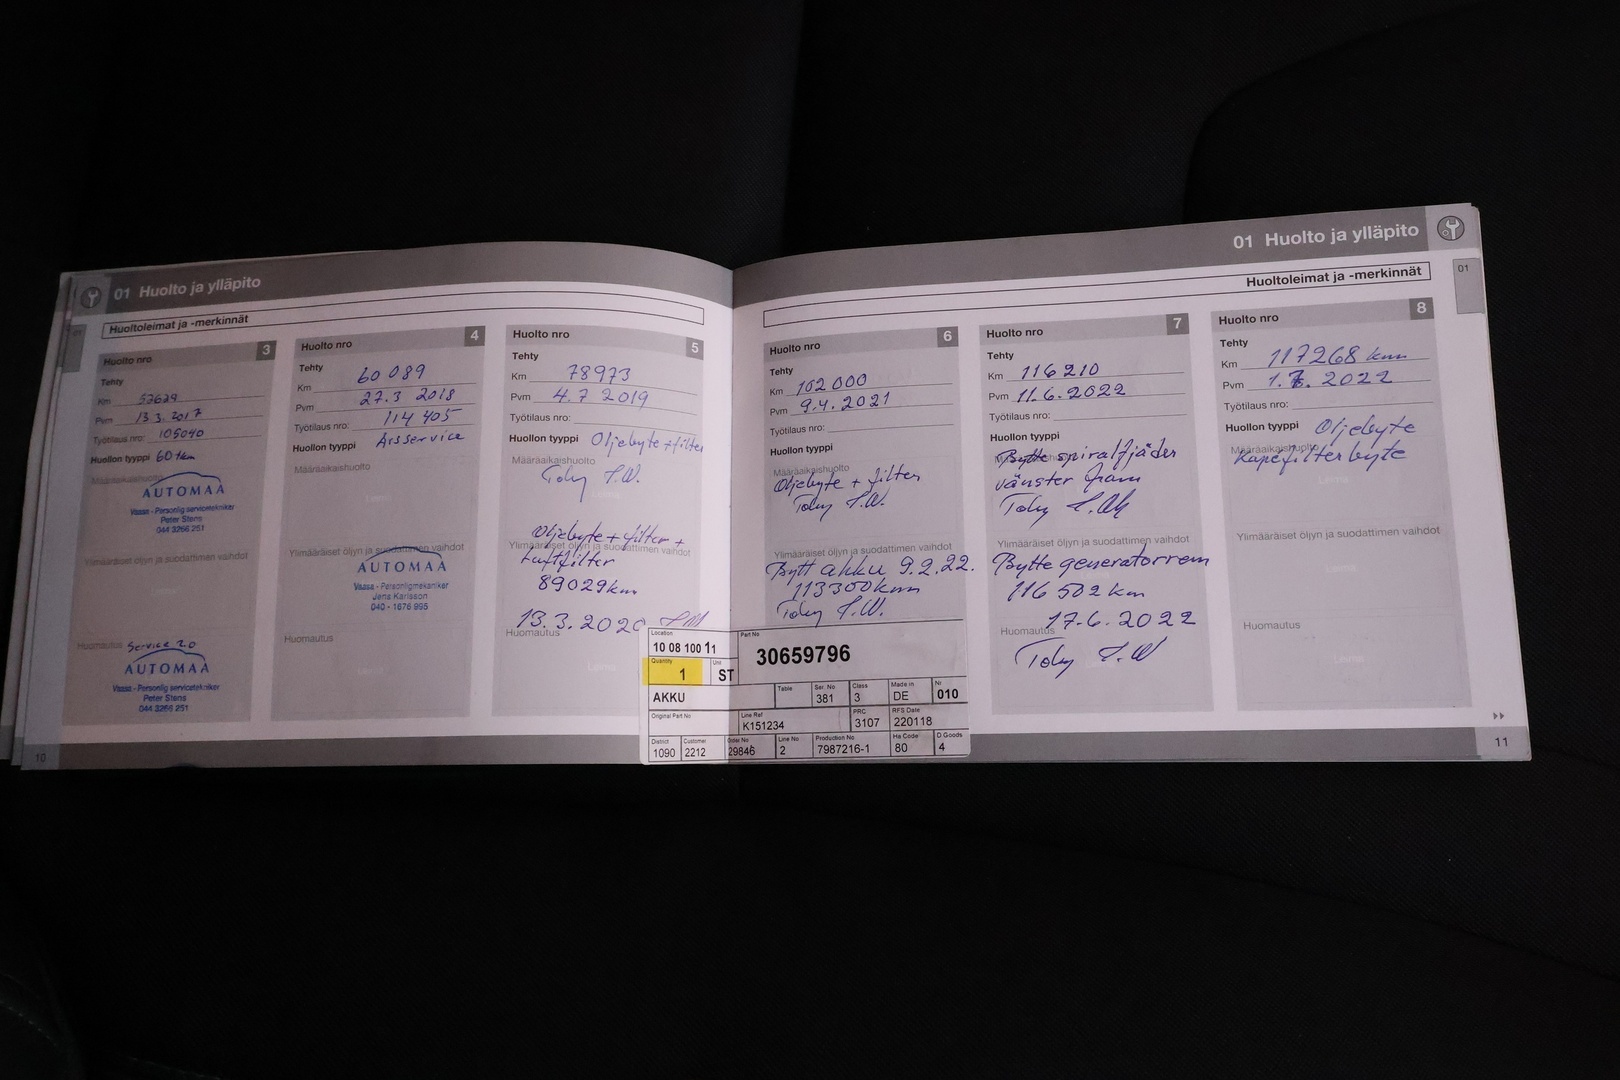 01 Huolto ja ylläpito
Huoltoleimat ja -merkinnät
Huolto nro 3
Tehty
Km 52629
Pvm 13.3.2017
Työtilaus nro: 105040
Huollon tyyppi 60 tkm
Määräaikaishuolto
AUTOMAA
Vaasa - Personlig servicetekniker
Peter Stens
044 3266 251
Ylimääräiset öljyn ja suodattimen vaihdot
Leima
Huomautus Service 2.0
AUTOMAA
Vaasa - Personlig servicetekniker
Peter Stens
044 3266 251
Huolto nro 4
Tehty
Km 60 089
Pvm 27.3 2018
Työtilaus nro: 114 405
Huollon tyyppi Årsservice
Määräaikaishuolto
Leima
Ylimääräiset öljyn ja suodattimen vaihdot
AUTOMAA
Vaasa - Personligmekaniker
Jens Karlsson
040 - 1676 995
Huomautus
Leima
Huolto nro 5
Tehty
Km 78973
Pvm 4.7 2019
Työtilaus nro:
Huollon tyyppi Oljebyte + filter
Määräaikaishuolto
Leima
Oljebyte + filter +
Ylimääräiset öljyn ja suodattimen vaihdot
Luftfilter
89029 km
13.3.2020
Huomautus
Leima
01 Huolto ja ylläpito
Huoltoleimat ja -merkinnät
01
Huolto nro 6
Tehty
Km 102 000
Pvm 9.4.2021
Työtilaus nro:
Huollon tyyppi
Määräaikaishuolto
Oljebyte + filter
Ylimääräiset öljyn ja suodattimen vaihdot
Bytt akku 9.2.22.
113300 km
Huolto nro 7
Tehty
Km 116210
Pvm 11.6.2022
Työtilaus nro:
Huollon tyyppi
Bytte spiralfjäder
vänster fram
Ylimääräiset öljyn ja suodattimen vaihdot
Bytte generatorrem
116 502 km
17.6.2022
Huomautus
Leima
Huolto nro 8
Tehty
Km 117268 km
Pvm 1.7. 2022
Työtilaus nro:
Huollon tyyppi Oljebyte
Määräaikaishuolto
Kupefilter byte
Leima
Ylimääräiset öljyn ja suodattimen vaihdot
Leima
Huomautus
Leima
Location
10 08 100 11
Part No
30659796
Quantity
1
Unit
ST
AKKU
Table
Ser. No
381
Class
3
Made in
DE
Nr
010
Original Part No
Line Ref
K151234
PRC
3107
RFS Date
220118
District
1090
Customer
2212
Order No
29846
Line No
2
Production No
7987216-1
Ha Code
80
D Goods
4
10
11